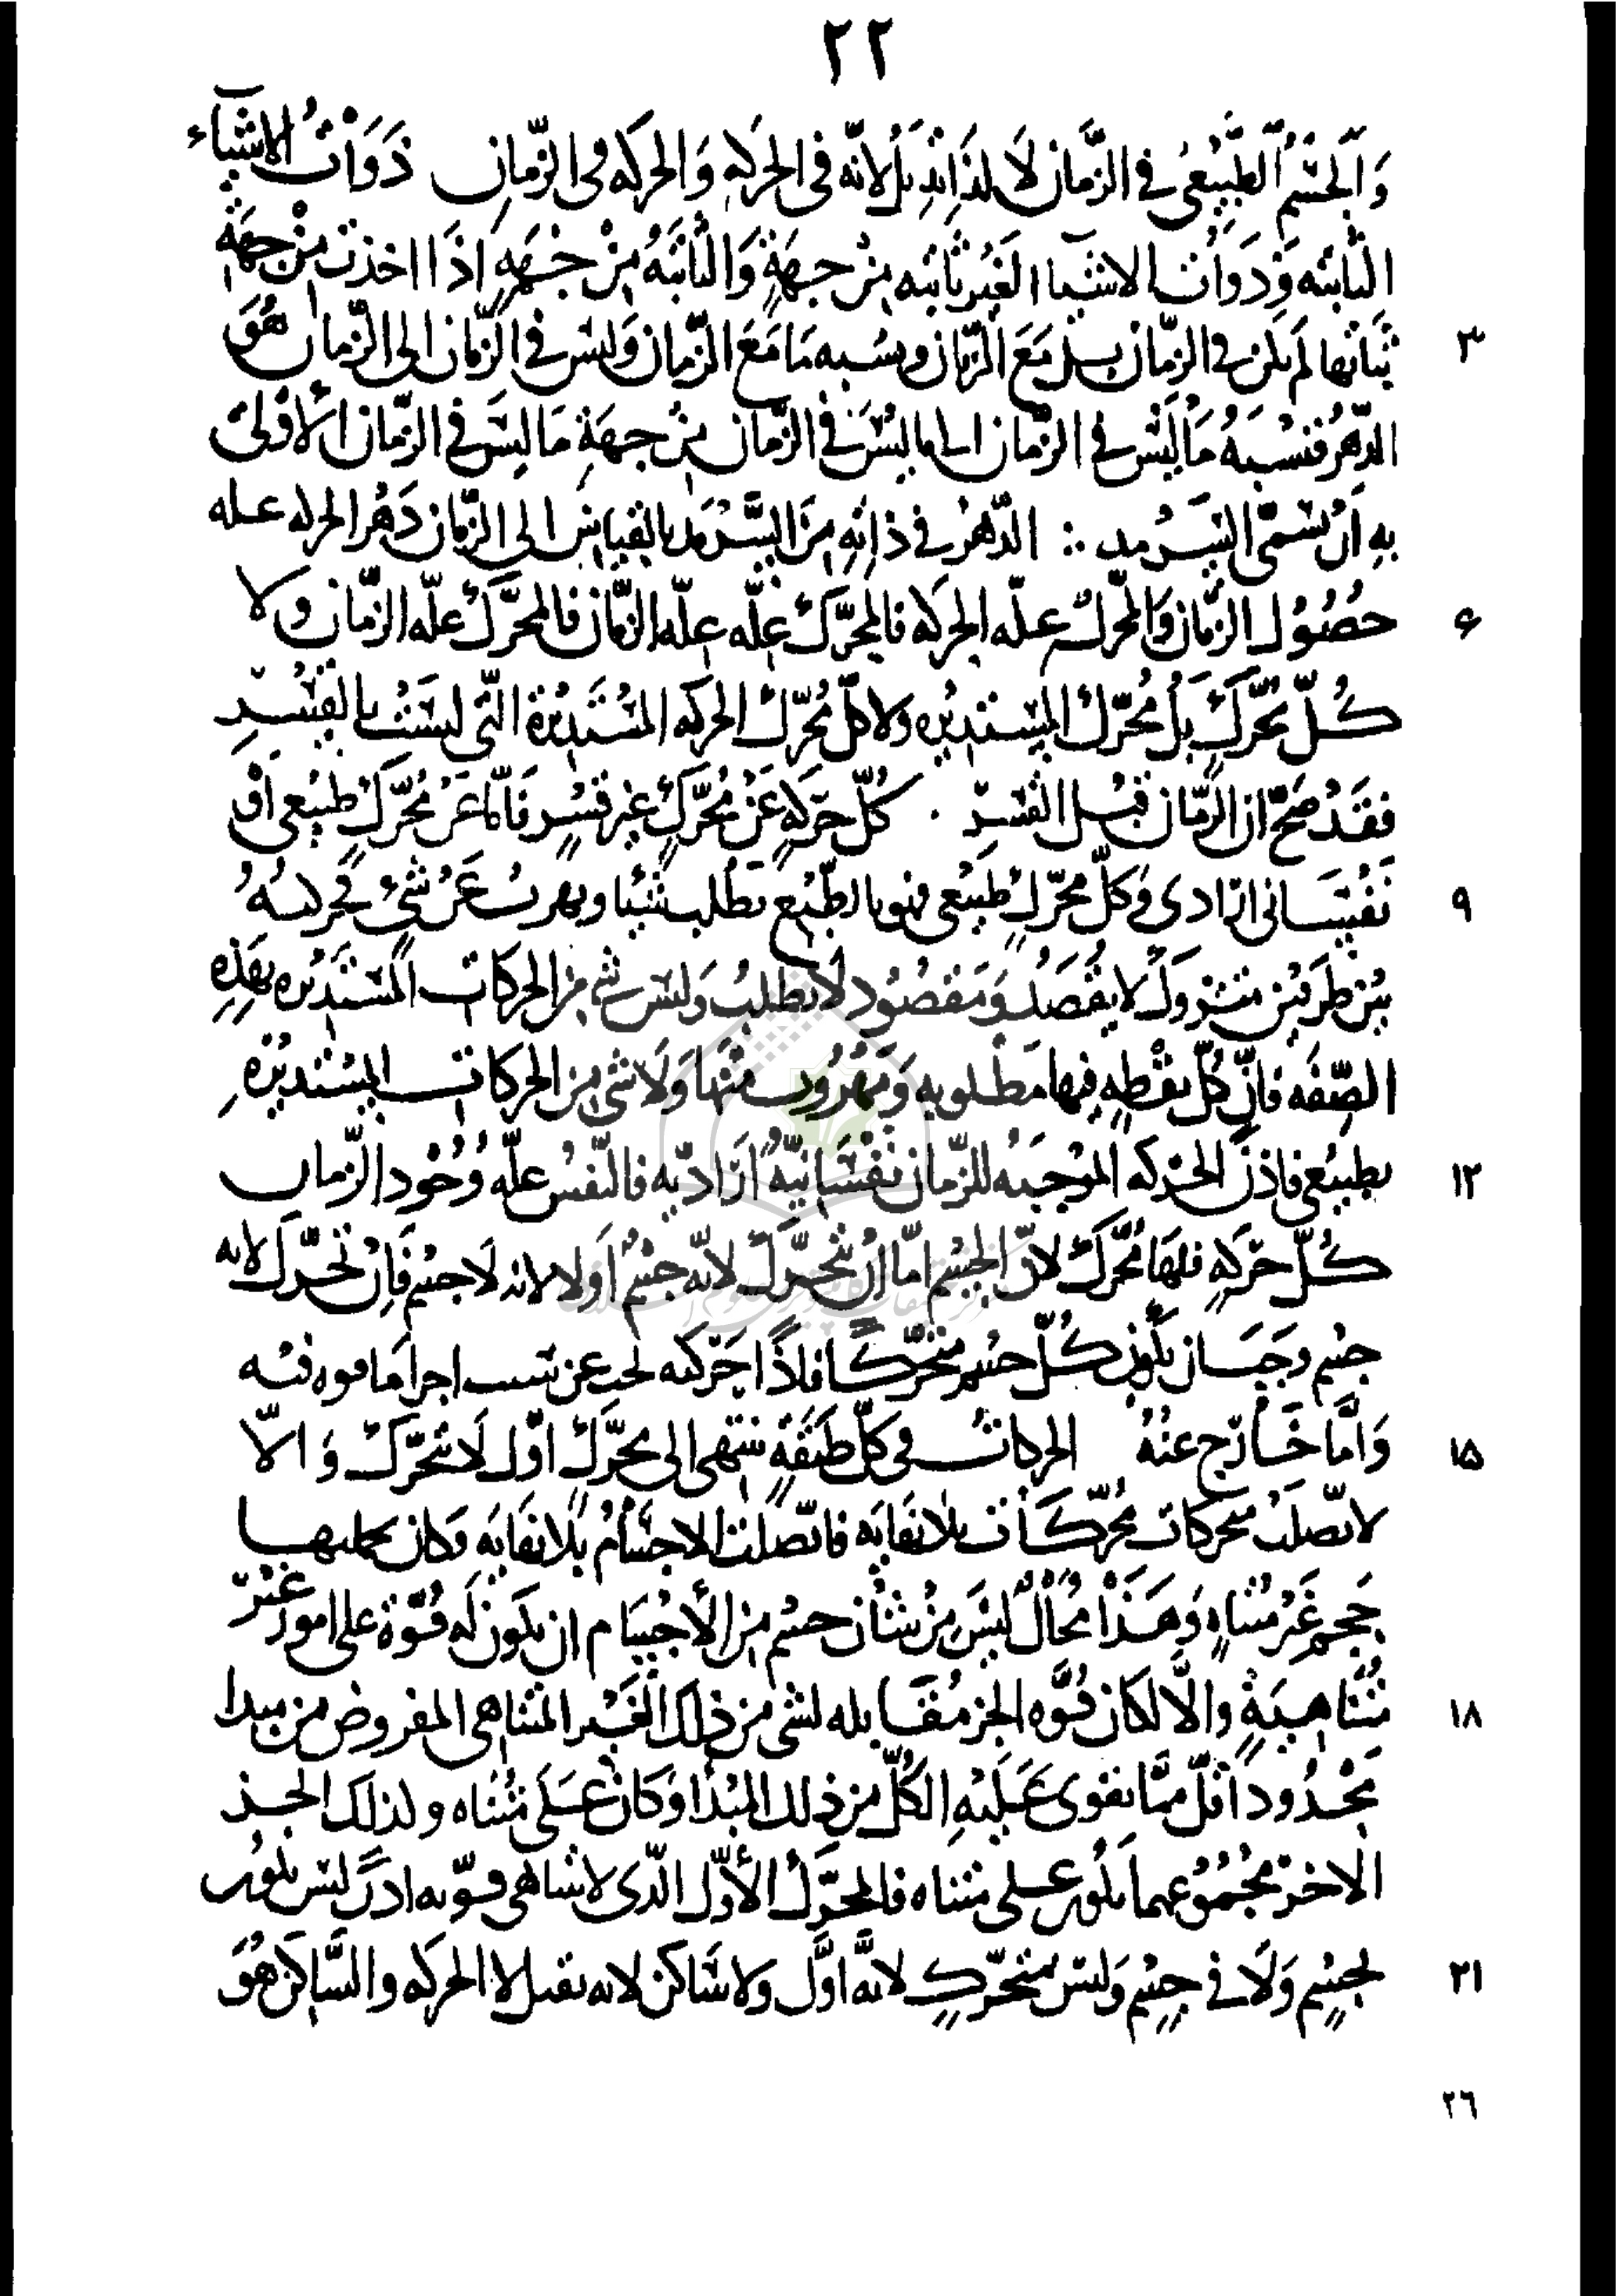 ٢٢
وَالجسْم الطَّبِيْعىُ في الزَّمان لَا لذَاتِهِ بَلْ لانّه فى الحركهِ وَالحركه فى الزّمانِ ذَوَاتُ الاشيآء
الثابته وَذوَاتُ الاشيآ الغَيْر ثابته مِنْ جهَةٍ وَالثابتَهُ مِنْ جِهَهٍ اذَا اخذت مِنْ جهَةِ
ثَبَاتها لَم يكن فى الزمان بل مَعَ الزّمان ونسْبه مَا مَعَ الزّمان وَليسَ في الزّمان الى الزّمان هُوَ
٣
الدّهرُ ونسْبهُ مَا لَيْسَ فى الزّمان الى ما ليْسَ فى الزّمان مِنْ جهَةِ مَا ليسَ فى الزمان الأولى
بهِ اَنْ يسَمّى السَرْمد ∴ الدّهْرُ فى ذاتِهِ مِنَ السَّرْمَد بالقياسِ الى الزّمان دَهْر الحركه عله
حصُوُل الزّمان وَالمحرك علّه الحركه فالمحَرّكُ علّه علّه الزّمان فالمحَرّكُ علّه الزّمان ولا
۶
كُلّ محَرّكٍ بَلْ مُحَرّك المسْتديْره ولا كلّ مُحَرّك الحركه المُسْتَديْرَة الّتى ليسَتْ بالقسْرِ
فقَدْ صَحّ ان الزّمان قبْل القسْرِ . كُلّ حَرَكهٍ عَنْ مُحَرّكٍ غير قسْرٍ فَامّا عَنْ مُحَرّكٍ طبيْعى اَوْ
نَفْسَانى ارَادى وَكلّ محَرّكٍ طَبيْعى فهو بالطّبْع يَطْلب شيْئا ويهربُ عَنْ شىْءٍ فحركتهُ
٩
بيْن طَرفيْن متْروك لا يُقْصَدُ وَمَقصُوْد لا يَطلبُ وَليْسَ شى مِن الحركات المسْتَديْره بهَذِهِ
الصِّفَه فانّ كُلّ نقْطهٍ فِيها مَطْلوبه وَمَهْرُوب مِنْهَا وَلَا شى مِن الحركات المسْتديْرةِ
بطبِيْعى فاذن الحَرَكه الموْجبَهُ للزّمان نَفْسَانيّهٌ ارَاديّه فالنّفسُ علّه وُجُود الزّمان
١٢
كُلّ حَرَكهٍ فلهَا مُحَرّكٌ لانّ الجِسْم امّا اَنْ يتحَرّكَ لانّه جسْمٌ اَوْ لا لانه لَا جسْم فَانْ تَحَرّكَ لانه
جسْم وجبَ ان يكُون كُلّ جسْم متحَرّكا فاذًا حَرَكته تجب عن سبب اخر امَا قوه فيْه
وَامَّا خَارج عنْهُ الحركاتُ فى كلّ طَبَقهٍ تنْتهى الى محَرّكٍ اوّل لَا يتحَرّك وَالّا
١۵
لاتّصلَتْ محركات مُحَرّكَات بلا نهَايَه فاتّصلَت الاجْسَامُ بلا نهَايَهٍ وَكان بجملتها
حَجم غَيْرُ مُتناهٍ وَهَذَا مُحَالٌ ليْسَ مِنْ شأن جسْم مِن الأجْسَام ان يكون لَه قُوّة على امور غيْر
مُتناهيَةٍ والَّا لكان قُوّه الجزْ مُقَابله لشى مِن ذلك الغَيْر المتناهى المفروض من مبدا
١٨
مَحْدُود اقَلّ ممَّا يقوى عَلَيْهِ الكُلّ من ذلك المبْدَأ وَكان عَلى مُتناه وكذلك الجز
الاخر مجْمُوْعهما يكُون على متناه فالمحَرّكُ الأوّل الّذى لا يتناهى قوّته اذنْ ليْسَ يكُون
لجسْمٍ وَلَا فى جسْم وَليْسَ بمتحَرّكٍ لانَّه اوَّل ولا سَاكن لانه يقبل لا الحركه والسَّاكن هُوَ
٢١
٢٦